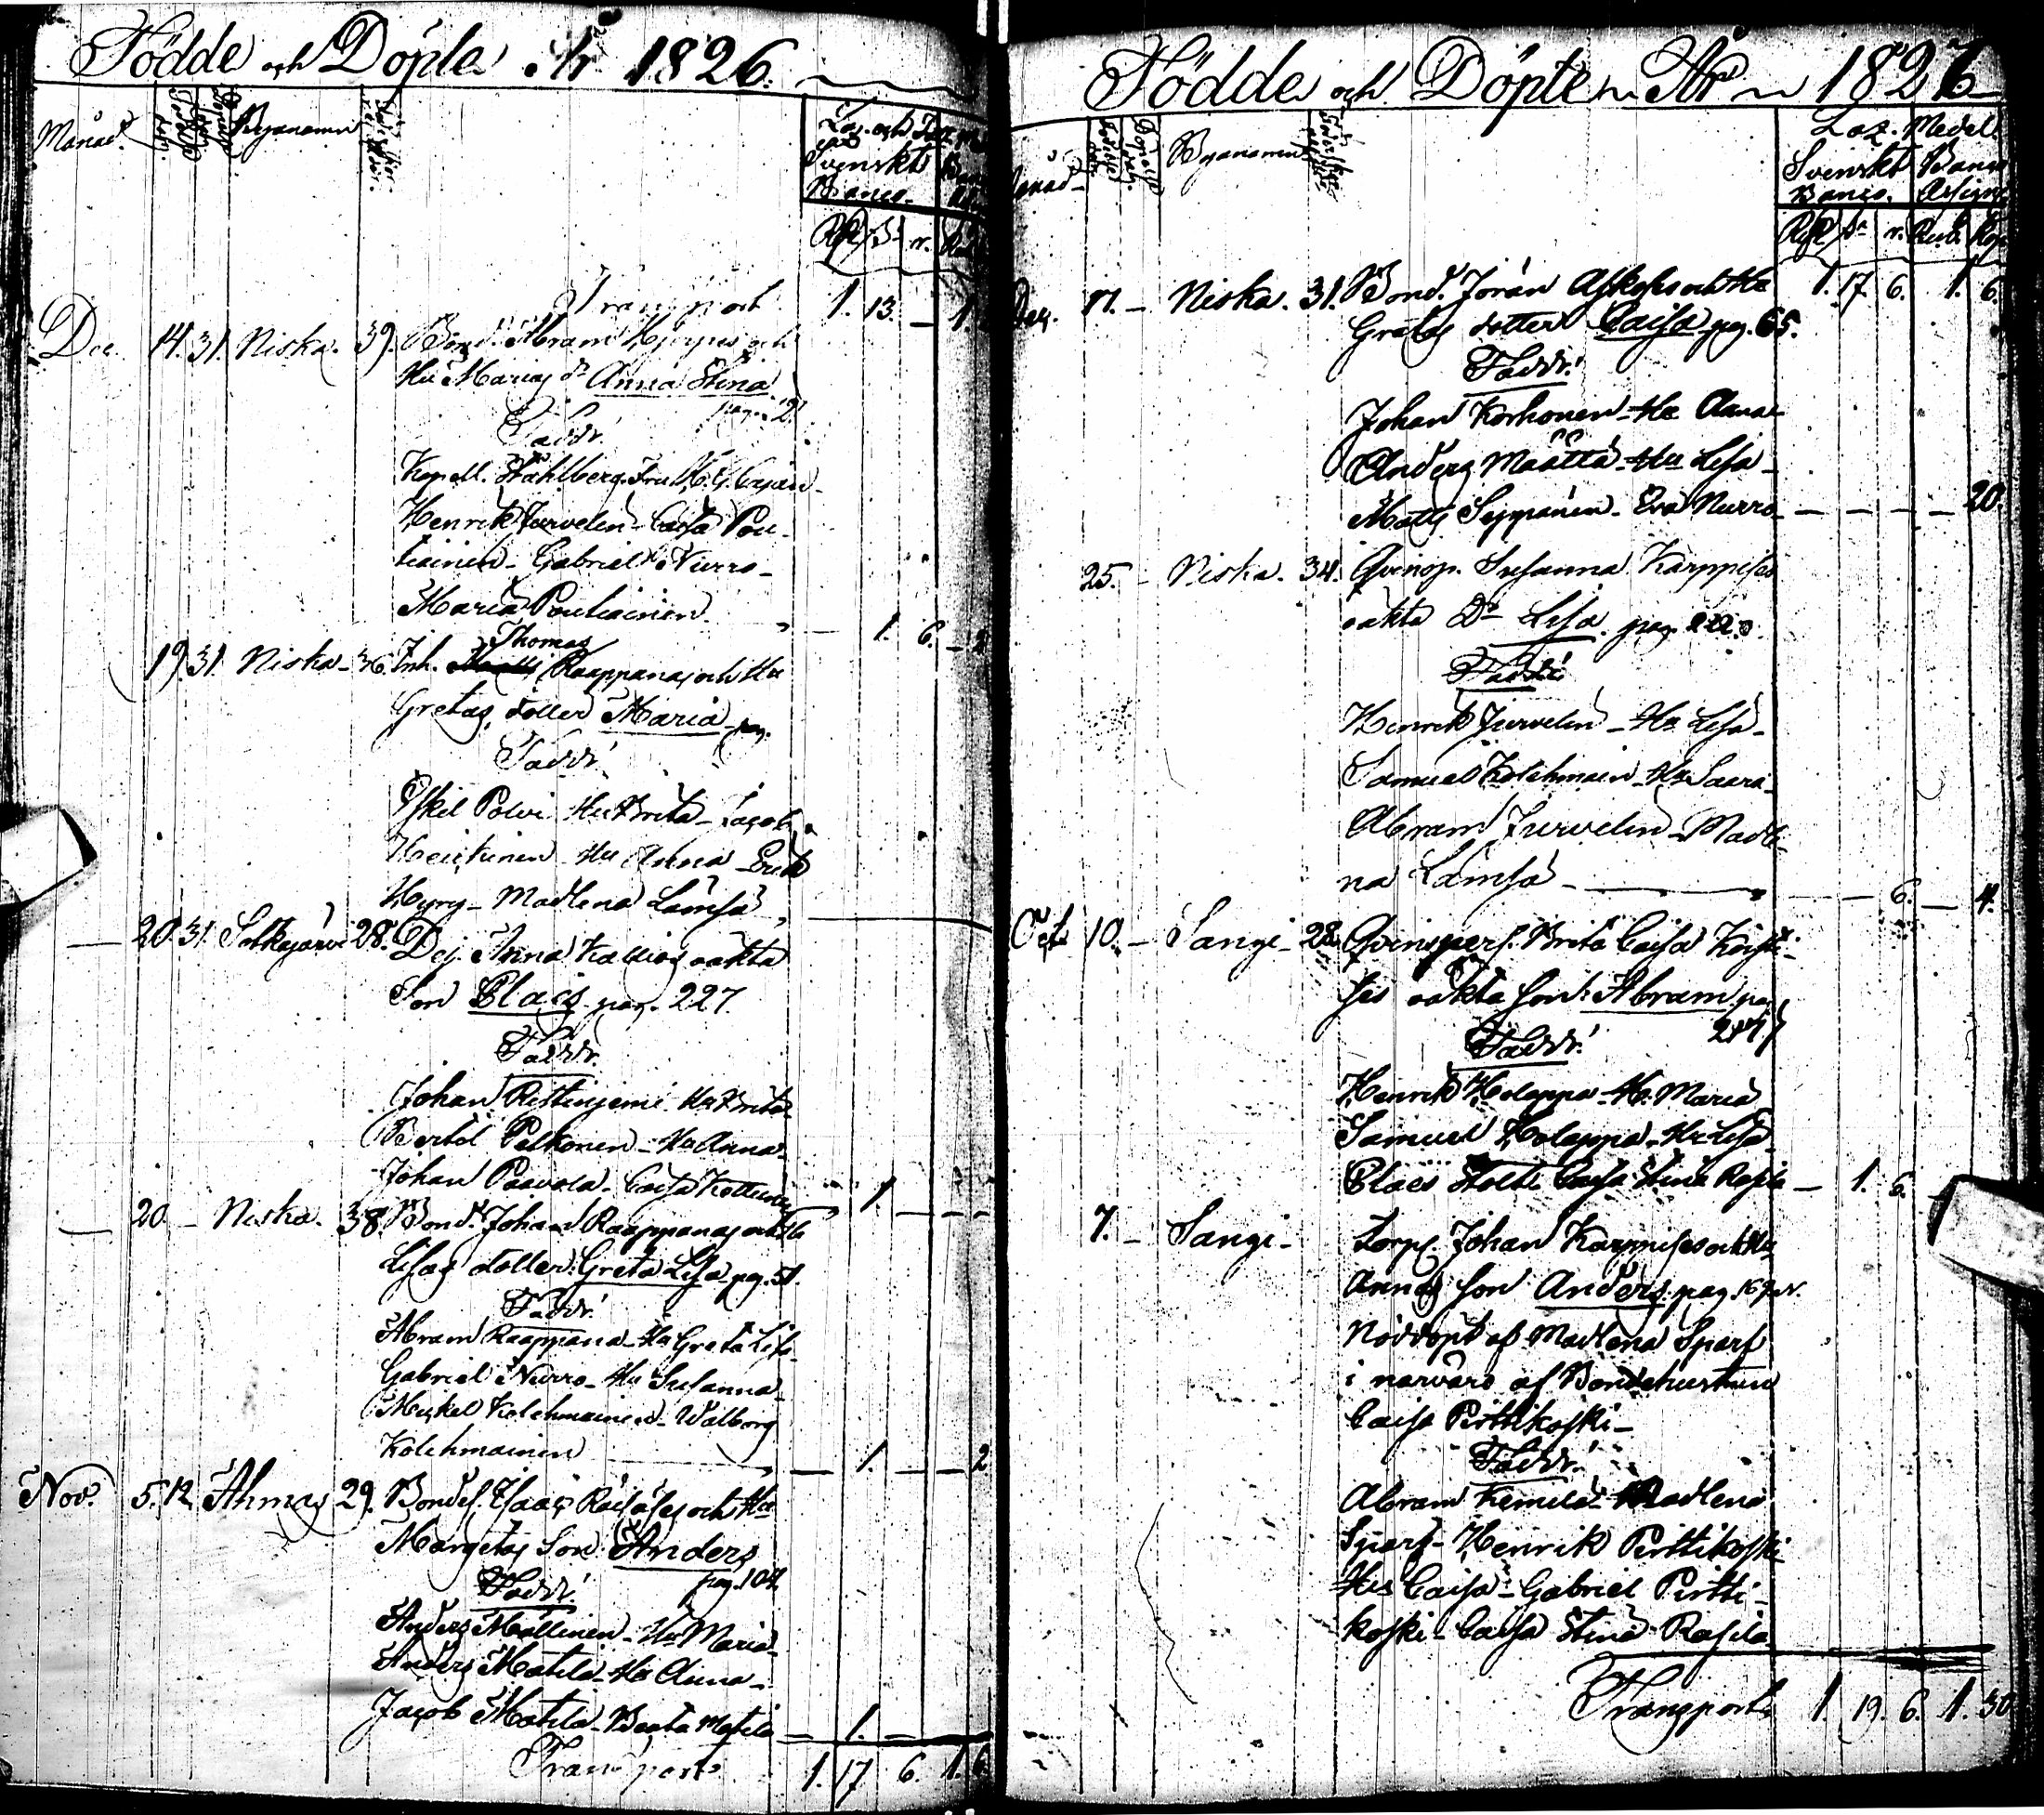 Födde och Döpte År 1826.
Månad. Födelse dag. Döpelse dag. Byanamn
Laz. och
Svenskt
Banco.
Rdr ß r.
Transport 1. 13. — 1.
Dec. 14. 31. Niska. 39. Bond. Abram Hyryns och
Hu Marias dr Anna Stina
pag. 2.
Faddr.
Kapell. Ståhlberg. Fru H. G. Cajan
Henrik Jurvelin. Caisa Pou-
tiainen. Gabriel Nurro.
Maria Poutiainen. — 1. 6.
Thomas
19. 31. Niska. 36. Inh. Raappanas och Hu
Gretas, dotter Maria pag.
Faddr.
Eskel Polvi Hu Brita. Jacob
Heickinen Hu Anna. Erik
Hyry. Madlena Lämsä
20. 31. Sotkajärvi 28. Pig. Anna Kallios oäkta
Son Claes pag. 227.
Faddr.
Johan Ristinjemi Hu Brita
Bertel Pelkonen. Hu Anna.
Johan Paavola. Caisa Kottinen 1.
20. — Niska. 38. Bond. Johan Raappanas och Hu
Lisas dotter Greta Lisa pag. 51.
Faddr.
Abram Raappana. Hu Greta Lisa.
Gabriel Nurro. Hu Susanna.
Mickel Kolehmainen. Walborg
Kolehmainen — 1. — — 2
Nov. 5. 12. Ahmas 29. Bondes. Isaac Räisäses och Hu
Margetas Son Anders
pag. 104.
Faddr.
Anders Mällinen. Hu Maria.
Anders Matila. Hu Anna.
Jacob Matila. Beata Matila — 1. —
Transport 1. 17 6. 1. 6
Födde och Döpte År 1826
Månad. Födelse dag. Döpelse dag. Byanamn
Laz. Medel
Svenskt Banco
Banco. Assign
Rdr ß r. Rub. Kop
Dec. 17. — Niska. 31. Bond. Jöran Askos och Hu 1. 17. 6. 1. 6.
Gretas dotter Caisa pag. 65.
Faddr.
Johan Korhonen. Hu Anna
Anders Määttä. Hu Lisa.
Matts Seppänen. Eva Nurro. — — — — 20.
25. — Niska. 34. Qvinsp. Susanna Karppises
oäkta Dr Lisa. pag.
Faddr.
Henrik Jurvelin. Hu Lisa.
Samuel Kolehmain. Hu Saara.
Abram Jurvelin. Madle-
na Lämsä. — — 6. — 4.
Oct. 10. — Sangi. 28. Qvinspers. Brita Caisa
oäkta son: Abram pag
217
Faddr.
Henrik Holappa. Hu Maria
Samuel Holappa. Hu Lisa
Claes Stolt. Caisa Stina Rasila — 1. 6.
7. — Sangi. Torp. Johan Karppises och Hu
Annas son Anders pag. 167.
Nöddöpt af Madlena Sparf
i närvaro af Bondehustrun
Caisa Pirttikoski.
Faddr.
Abram Kemilä. Madlena
Sparf. Henrik Pirttikoski.
Hus Caisa. Gabriel Pirtti-
koski. Caisa Stina Rasila.
Transport 1. 19. 6. 1. 30